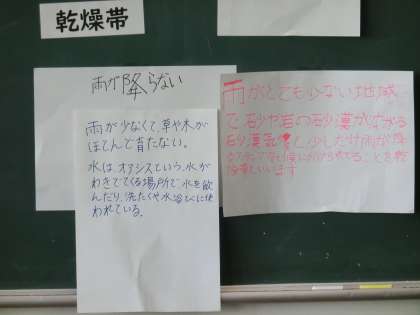 乾燥帯
雨が降らない
雨が少なくて、草や木が
ほとんど育たない。
水は、オアシスという、水が
わきでてくる場所で、水を飲
んだり、洗たくや水浴びに使
われている。
雨がとても少ない地域
で砂や岩の砂漠が広がる
砂漠気候と少しだけ雨が降る
ステップ気候に分けられてることを乾
燥帯といいます